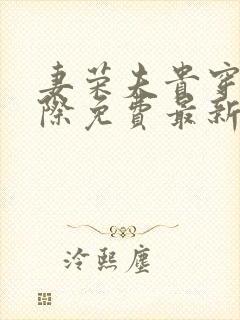 妻荣夫贵穿
际免费最新
冷熙尘